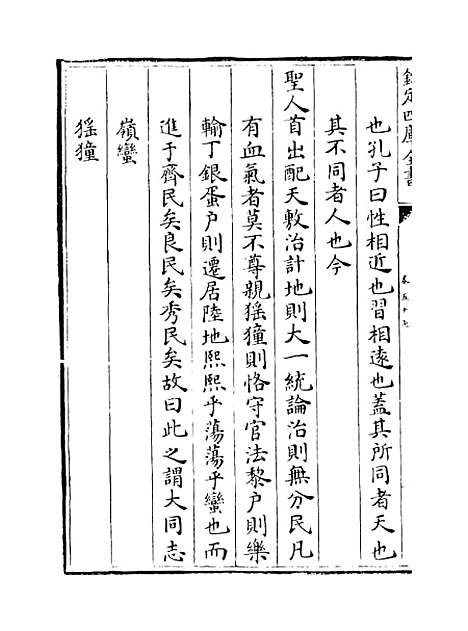 欽定四庫全書
卷五十七
也孔子曰性相近也習相遠也蓋其所同者天也
其不同者人也今
聖人首出配天敷治計地則大一統論治則無分民凡
有血氣者莫不尊親猺獞則恪守官法黎户則樂
輸丁銀蛋户則遷居陸地熙熙乎蕩蕩乎蠻也而
進于齊民矣良民矣秀民矣故曰此之謂大同志
嶺蠻
猺獞